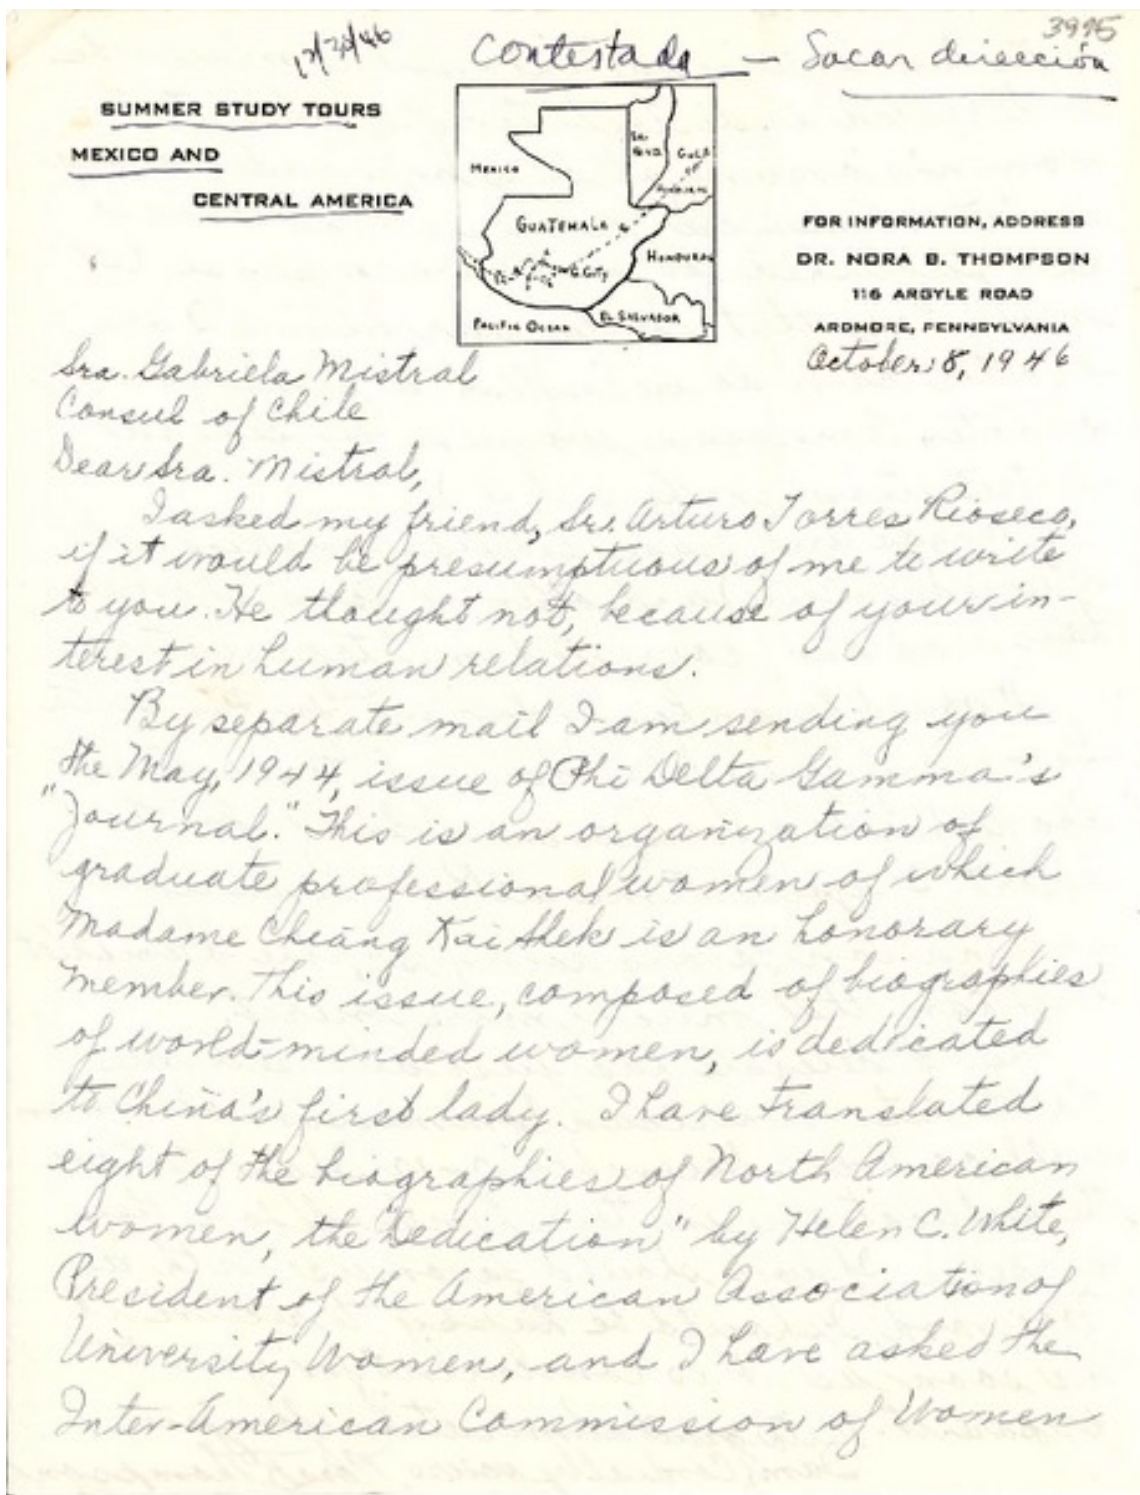 3995
12/30/46
Contestada — Sacar dirección
SUMMER STUDY TOURS
MEXICO AND
CENTRAL AMERICA
MEXICO
GULF
HONDURAS
GUATEMALA
G. CITY
HONDURAS
EL SALVADOR
PACIFIC OCEAN
FOR INFORMATION, ADDRESS
DR. NORA B. THOMPSON
116 ARGYLE ROAD
ARDMORE, PENNSYLVANIA
October 8, 1946
Sra. Gabriela Mistral
Consul of Chile
Dear Sra. Mistral,
I asked my friend, Sr. Arturo Torres Rioseco,
if it would be presumptuous of me to write
to you. He thought not, because of your in-
terest in human relations.
By separate mail I am sending you
the May, 1944, issue of Phi Delta Gamma's
"Journal." This is an organization of
graduate professional women of which
Madame Chiang Kai Shek is an honorary
member. This issue, composed of biographies
of world-minded women, is dedicated
to China's first lady. I have translated
eight of the biographies of North American
women, the "Dedication" by Helen C. White,
President of the American Association of
University Women, and I have asked the
Inter-American Commission of Women